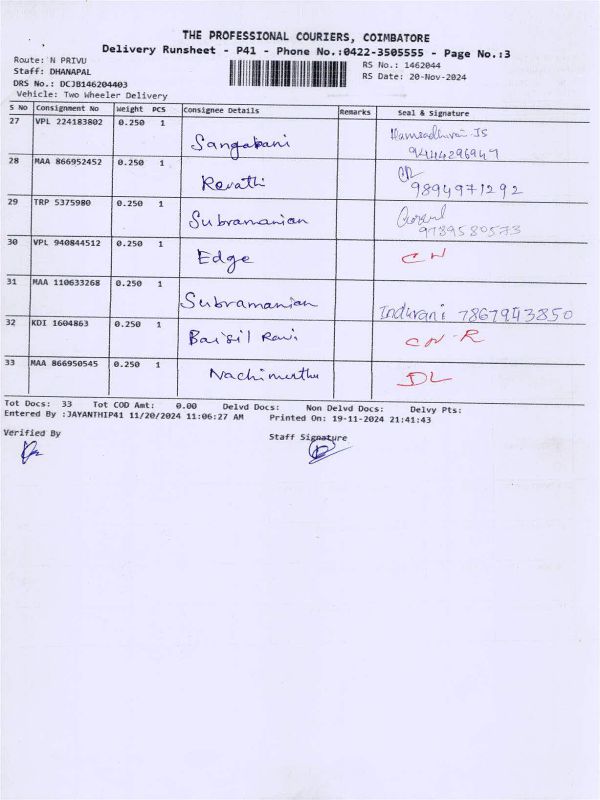 THE PROFESSIONAL COURIERS, COIMBATORE
Delivery Runsheet - P41 - Phone No.:0422-3505555 - Page No.:3
Route: N PRIVU
RS No.: 1462044
Staff: DHANAPAL
RS Date: 20-Nov-2024
DRS No.: DCJB146204403
Vehicle: Two Wheeler Delivery
S No Consignment No Weight PCS Consignee Details Remarks Seal & Signature
27 VPL 224183802 0.250 1 Sangabani
9444296947
28 MAA 866952452 0.250 1 Revathi
9894971292
29 TRP 5375980 0.250 1 Subramanian
9789580573
30 VPL 940844512 0.250 1 Edge CN
31 MAA 110633268 0.250 1 Subramanian Indurani 7867943850
32 KDI 1604863 0.250 1 Baisil Ravi CN-R
33 MAA 866950545 0.250 1 Nachimuthu DL
Tot Docs: 33 Tot COD Amt: 0.00 Delvd Docs: Non Delvd Docs: Delvy Pts:
Entered By :JAYANTHIP41 11/20/2024 11:06:27 AM Printed On: 19-11-2024 21:41:43
Verified By
Staff Signature